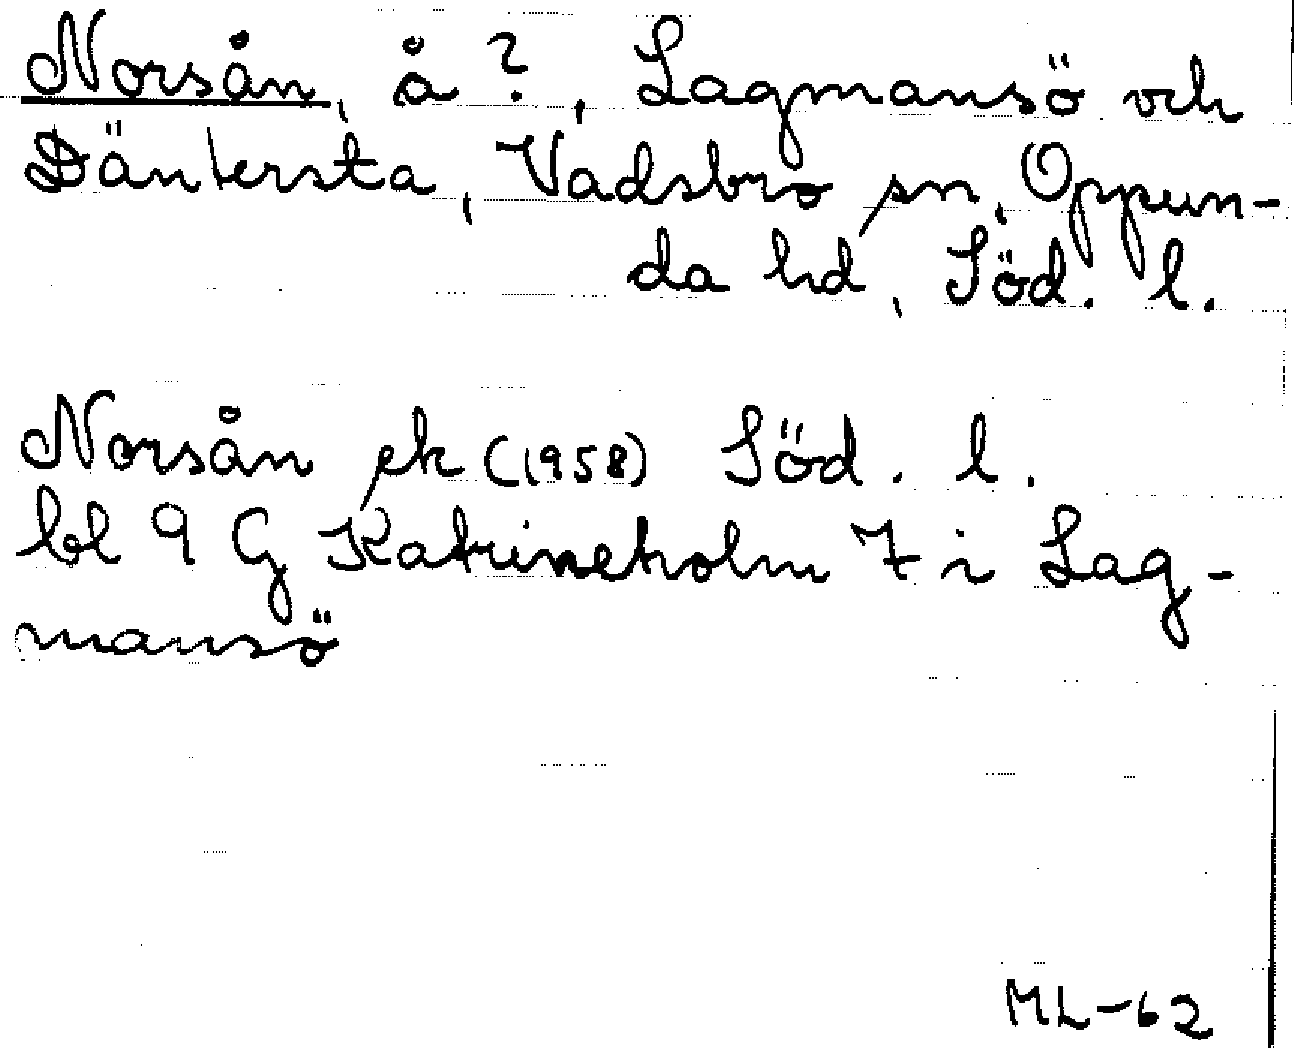 Norsån, å?, Lagmansö och
Däntersta, Vadsbro sn, Oppun-
da hd, Söd. l.
Norsån ek (1958) Söd. l.
bl 9 G Katrineholm 7 i Lag-
mansö
ML-62